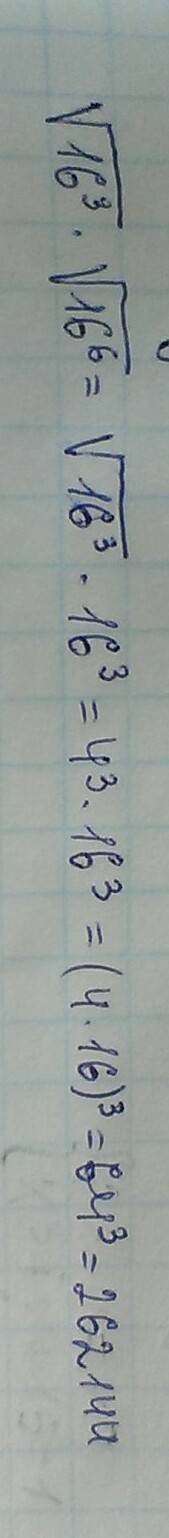 √16³ · √16⁶ = √16³ · 16³ = 4³ · 16³ = (4 · 16)³ = 64³ = 262144